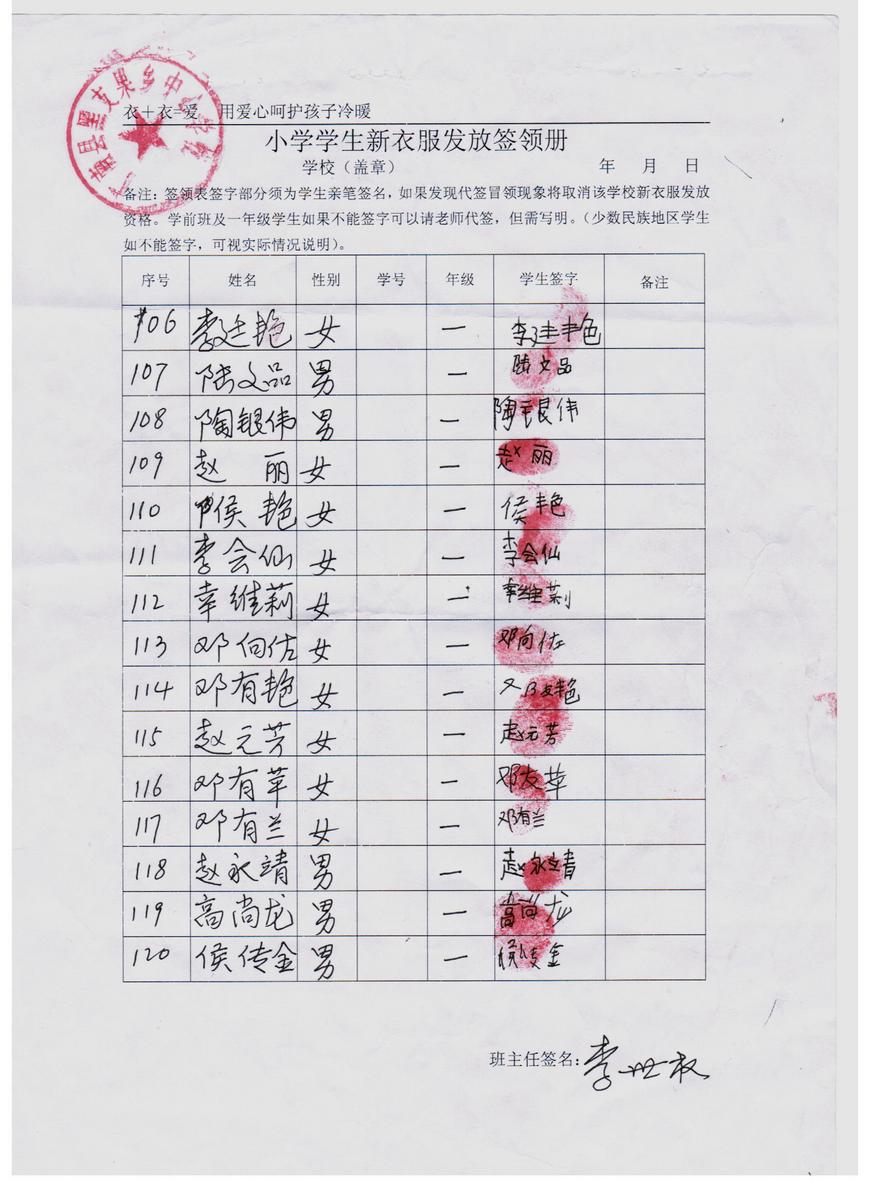 广南县黑支果乡中心学校
衣+衣=爱 用爱心呵护孩子冷暖
小学学生新衣服发放签领册
学校（盖章） 年 月 日
备注：签领表签字部分须为学生亲笔签名，如果发现代签冒领现象将取消该学校新衣服发放
资格。学前班及一年级学生如果不能签字可以请老师代签，但需写明。（少数民族地区学生
如不能签字，可视实际情况说明）。
序号 姓名 性别 学号 年级 学生签字 备注
106 李廷艳 女 一 李廷艳
107 陆文品 男 一 陆文品
108 陶银伟 男 一 陶银伟
109 赵 丽 女 一 赵 丽
110 侯 艳 女 一 侯 艳
111 李会仙 女 一 李会仙
112 韦维莉 女 一 韦维莉
113 邓向佐 女 一 邓向佐
114 邓有艳 女 一 邓友艳
115 赵元芳 女 一 赵元芳
116 邓有苹 女 一 邓友苹
117 邓有兰 女 一 邓有兰
118 赵永靖 男 一 赵永靖
119 高尚龙 男 一 高尚龙
120 侯传金 男 一 侯传金
班主任签名：李世权